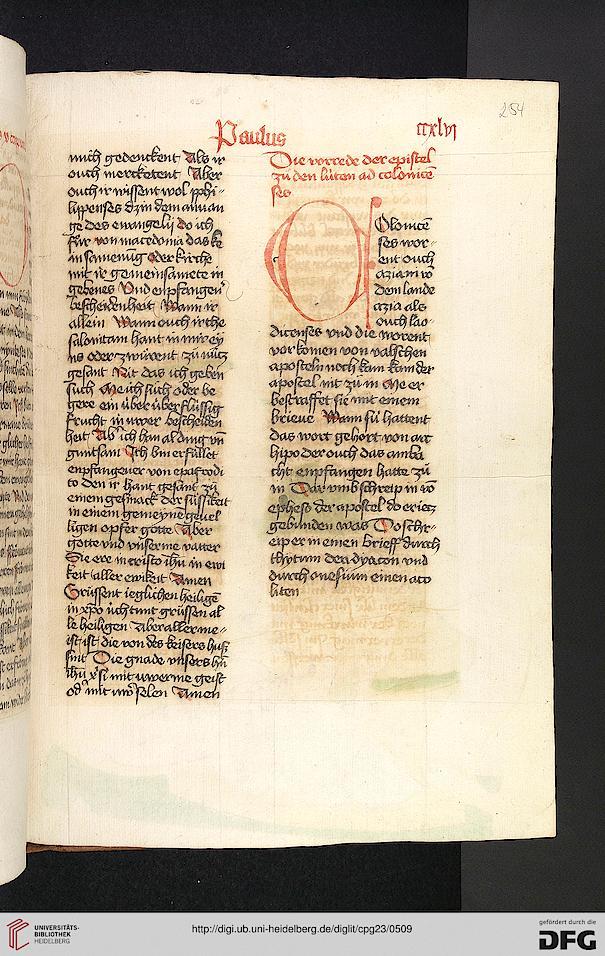 254
Paulus
ccxlvj
mich gedenckent Als ir
ouch merckerent Aber
ouch ir wissent wol phi-
lippenses dz in dem anuan
ge des ewangelij do ich
fuͤr von macedonia das ke
in samenung oder kirche
mit ir gemeinsamete in
gebenes Vnd enpfangen
bescheidenheit Wann ir
allein Wann ouch in the
salonicam hant in mir ey
ns oder zwurent zu nutz
gesant Nit das ich geben
such Me ich such oder be
gere ein uͤber uͤberfluͤssig
frucht in uwer bescheiden
heit Ab ich han al ding vn
gnutsam Ich bin erfuͤllet
enpfangener von epafrodi
to den ir hant gesant zu
einem gesmack der suͤssikeit
in einem gemeyne geuel
ligen opfer gotte Aber
gotte vnd vnserme vatter
Sie ere in cristo ihu in ewi
keit aller ewikeit Amen
Gruͤssent ieglichen heilige
in xpo uch tunt gruͤssen al
le heiligen Aber aller me-
ist ist die von des keisers huß
sint Die gnade vnsers hn
ihu xpi mit uwerme geist
od mit uwer selen Amen
Die vorrede der epistel
zu den luͤten ad colonice
ses
Colonice
ses wor-
ent ouch
aziani vo
dem lande
azia als
ouch lao
dicenses vnd die worent
vorkomen von valschen
aposteln noch kam kam der
apostel nit zu in Me er
bestraffet sie mit einem
brieue Wann suͤ hattent
das wort gehort von arc
hipo der ouch das amba
cht enpfangen hatte zu
in Dar vmb schreip in vo
epheso der apostel do er ietz
gebunden was Do schr-
eip er in einen brieff durch
thytum den dyacon vnd
durch onesium einen aco
liten
UNIVERSITÄTS-
BIBLIOTHEK
HEIDELBERG
http://digi.ub.uni-heidelberg.de/diglit/cpg23/0509
gefördert durch die
DFG